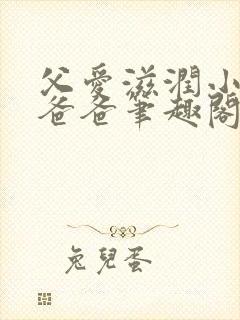 父愛滋潤小
爸爸筆趣閣
兔兒蛋